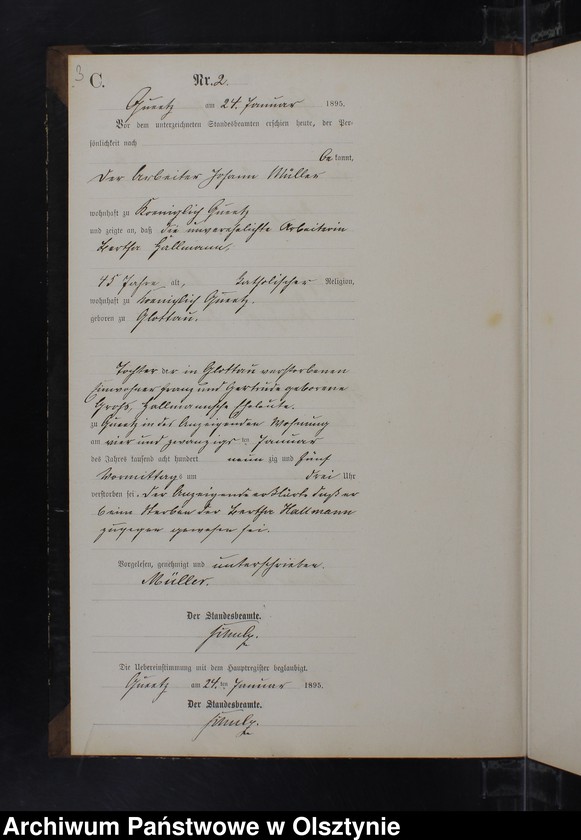 3
C.
Nr. 2.
Queetz am 24. Januar 1895.
Vor dem unterzeichneten Standesbeamten erschien heute, der Per-
sönlichkeit nach
be kannt,
der Arbeiter Johann Müller
wohnhaft zu Koeniglich Queetz
und zeigte an, daß die unverehelichte Arbeiterin
Bertha Hallmann,
45 Jahre alt, katholischer Religion,
wohnhaft zu Koeniglich Queetz.
geboren zu Glottau.
Tochter der in Glottau verstorbenen
Einwohner Franz und Gertrude geborene
Groß, Hallmannsche Eheleute.
zu Queetz in des Anzeigenden Wohnung
am vier und zwanzigs ten Januar
des Jahres tausend acht hundert neun zig und fünf
Vormittags um drei Uhr
verstorben sei. Der Anzeigende erklärte daß er
beim Sterben der Bertha Hallmann
zugegen gewesen sei.
Vorgelesen, genehmigt und unterschrieben.
Müller.
Der Standesbeamte.
Die Uebereinstimmung mit dem Hauptregister beglaubigt.
Queetz am 24. ten Januar 1895.
Der Standesbeamte.
Archiwum Państwowe w Olsztynie